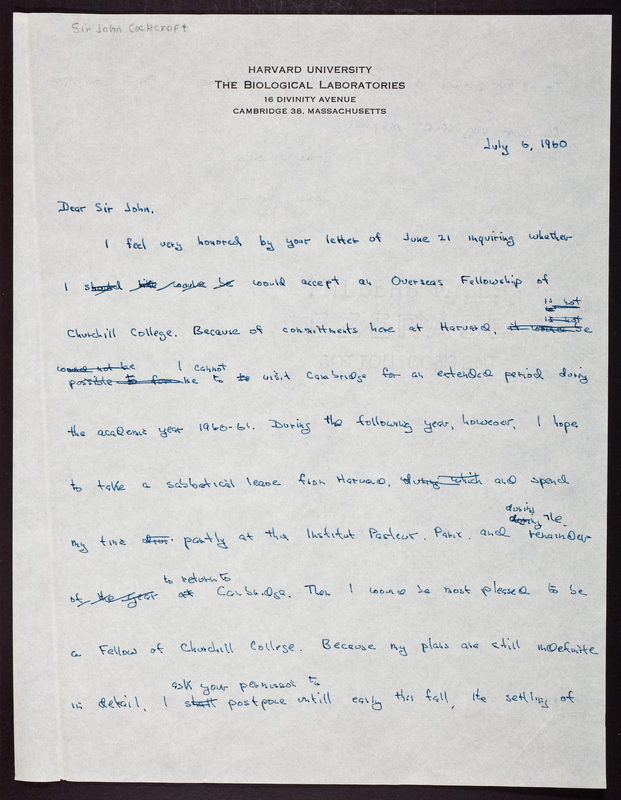 Sir John Cockcroft
HARVARD UNIVERSITY
THE BIOLOGICAL LABORATORIES
16 DIVINITY AVENUE
CAMBRIDGE 38, MASSACHUSETTS
July 6, 1960
Dear Sir John,
I feel very honored by your letter of June 21 inquiring whether
I should like would be would accept an Overseas Fellowship of
is not
Churchill College. Because of committments here at Harvard, it would be
is not
would not be I cannot
possible to for me to to visit Cambridge for an extended period during
the academic year 1960-61. During the following year, however, I hope
to take a sabbatical leave from Harvard, during which and spend
during
my time partly at the Institut Pasteur, Paris, and during the remainder
to return to
of the year at Cambridge. Then I would be most pleased to be
a Fellow of Churchill College. Because my plans are still indefinite
ask your permission to
in detail, I shall postpone untill early this fall, the settling of